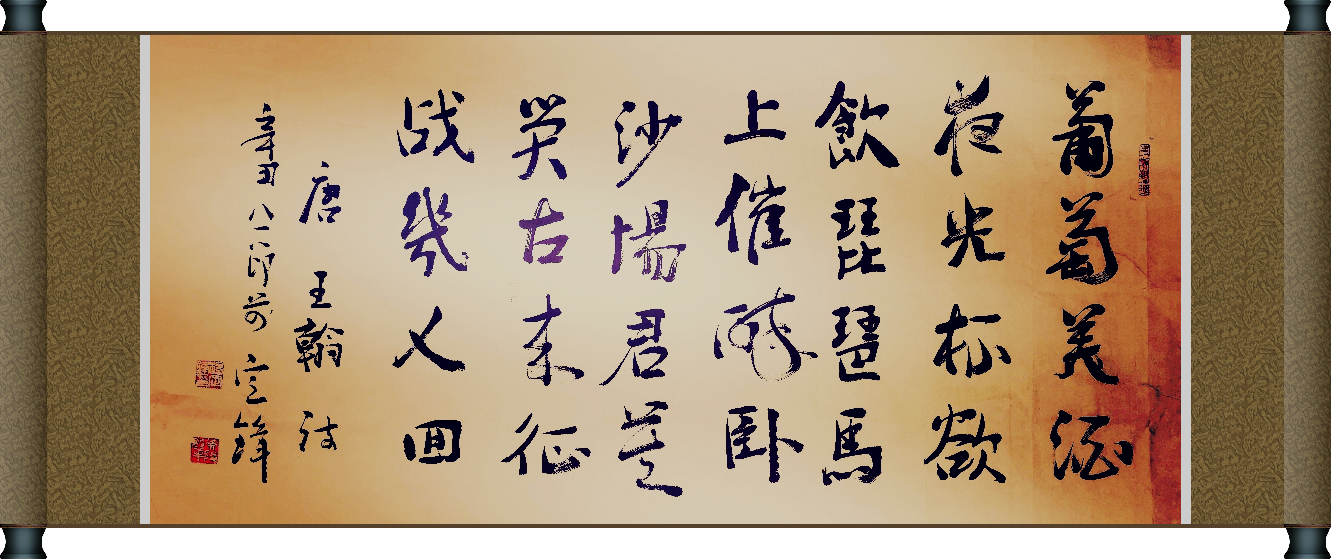 葡萄美酒
夜光杯欲
飲琵琶馬
上催醉卧
沙場君莫
笑古来征
战幾人回
唐 王翰 诗
辛丑八一節前